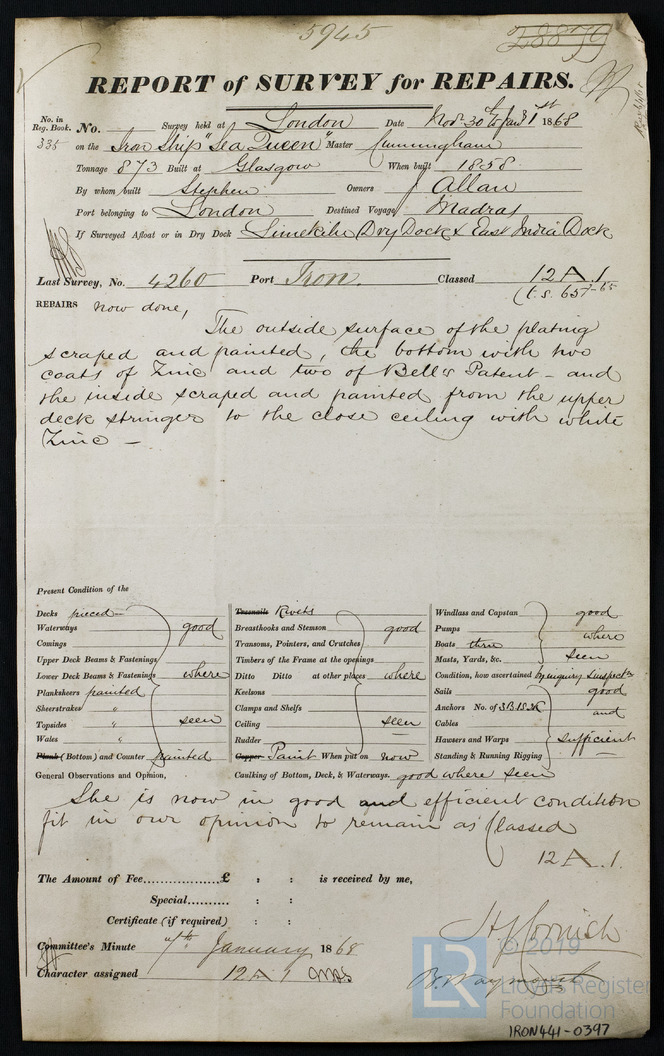 5945
REPORT of SURVEY for REPAIRS.
No. in Reg. Book. No. Survey held at London Date Nov. 30th to Jany 1st 1868
335 on the Iron Ship "Sea Queen" Master Cunningham
Tonnage 873 Built at Glasgow When built 1858
By whom built Stephen Owners J Allan
Port belonging to London Destined Voyage Madras
If Surveyed Afloat or in Dry Dock Limekiln Dry Dock & East India Dock
Last Survey, No. 4260 Port Iron. Classed 12 A. 1
(t.s. 657-65
REPAIRS now done,
The outside surface of the plating
scraped and painted, the bottom with two
coats of Zinc and two of Bell's Patent - and
the inside scraped and painted from the upper
deck stringer to the close ceiling with white
Zinc -
Present Condition of the
Decks pieced Treenails Rivets Windlass and Capstan good
Waterways good Breasthooks and Stemson good Pumps where
Comings Transoms, Pointers, and Crutches Boats three
Upper Deck Beams & Fastenings Timbers of the Frame at the openings Masts, Yards, &c. seen
Lower Deck Beams & Fastenings where Ditto Ditto at other places where Condition, how ascertained inquiry
Planksheers painted Keelsons Sails good
Sheerstrakes " Clamps and Shelfs Anchors No. of 3B 1S 2K and
Topsides " seen Ceiling seen Cables
Wales " Rudder Hawsers and Warps sufficient
Plank (Bottom) and Counter painted Copper Paint When put on now Standing & Running Rigging
General Observations and Opinion, Caulking of Bottom, Deck, & Waterways. good where seen
She is now in good and efficient condition
fit in our opinion to remain as Classed
12 A. 1.
The Amount of Fee................£ : : is received by me,
Special.......... : :
Certificate (if required) : :
H J Cornish
Committee's Minute 7th January 1868
Character assigned 12 A 1
B. Waymouth
LR © 2019
Lloyd's Register
Foundation
IRON441-0397